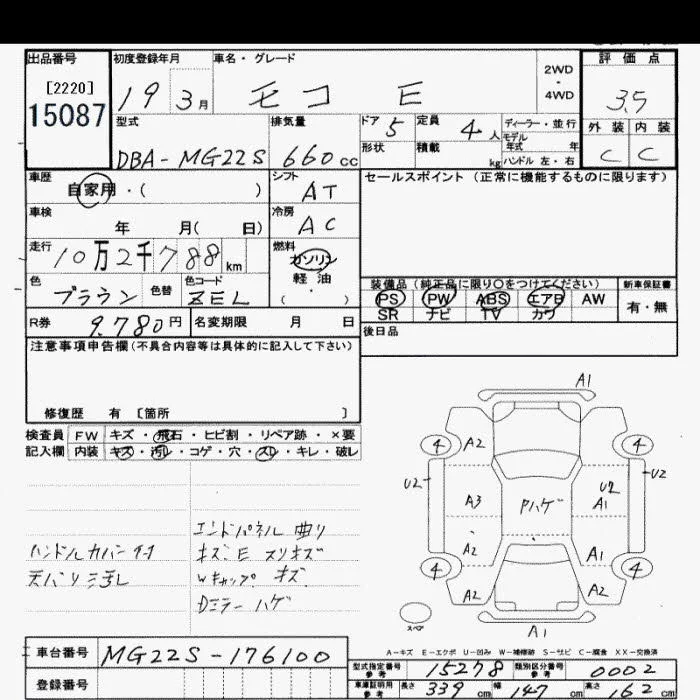 出品番号
[2220]
15087
初度登録年月
19 3月
車名・グレード
モコ E
2WD
・
4WD
評価点
3.5
外装 内装
C C
型式
DBA-MG22S
排気量
660cc
ドア 5
定員 4人
ディーラー・並行
モデル
年式 年
形状
積載 kg
ハンドル 左・右
車歴
自家用・( )
シフト
AT
セールスポイント (正常に機能するものに限ります)
車検
年 月( 日)
冷房
AC
走行
10万2千788km
燃料
ガソリン
軽油
( ・ )
色
ブラウン
色替
色コード
ZEL
装備品 (純正品に限り○をつけてください)
PS PW ABS エアB AW
SR ナビ TV カワ
新車保証書
有・無
R券 9.780円
名変期限 月 日
後日品
注意事項申告欄(不具合内容等は具体的に記入して下さい)
修復歴 有 〔箇所 〕
検査員 FW キズ・飛石・ヒビ割・リペア跡・×要
記入欄 内装 キズ・汚レ・コゲ・穴・スレ・キレ・破レ
エンドパネル 曲り
ハンドルカバー付
キズ、E スリキズ
天バリ汚レ
Wキャップ キズ
Dミラー ハゲ
A1
4 A2 4
U2 A3 Pハゲ U2 A1 U2
A2 A1
4 A2 A2 4
スペア
A1
A-キズ E-エクボ U-凹み W-補修跡 S-サビ C-腐食 XX-交換済
車台番号 MG22S-176100
型式指定番号
参考
15278
類別区分番号
参考
0002
登録番号
車庫証明用
参考
長さ 339cm 幅 147cm 高さ 162cm